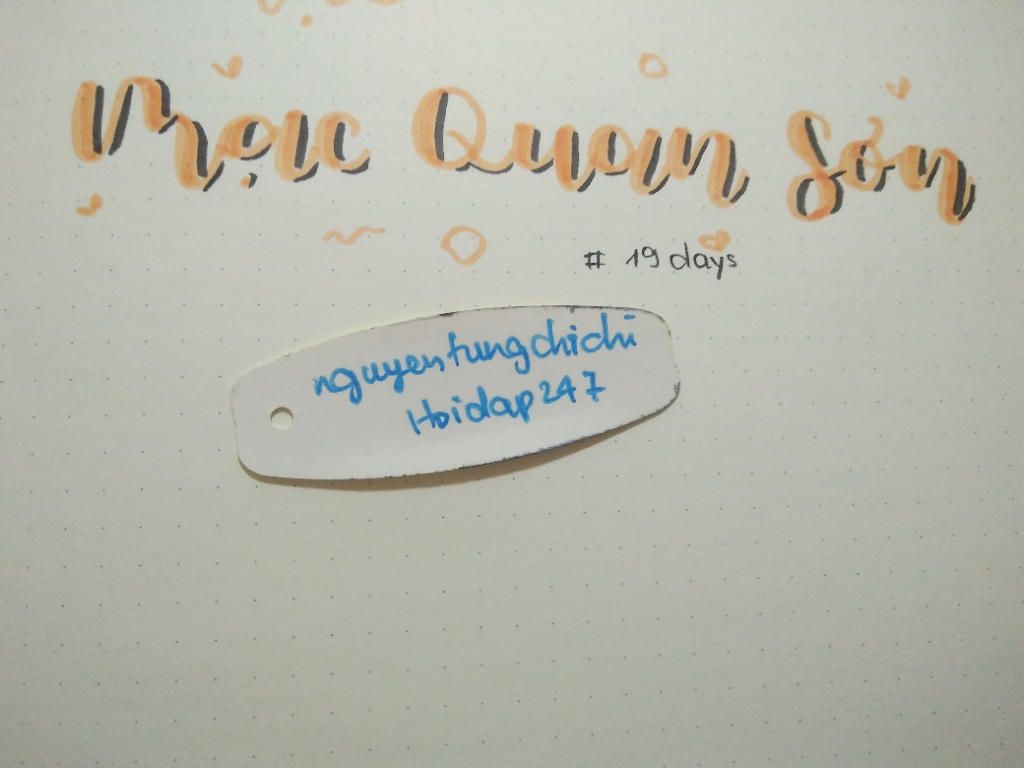 Mạc Quan Sơn
# 19 days
nguyentungchichi
Hoidap247